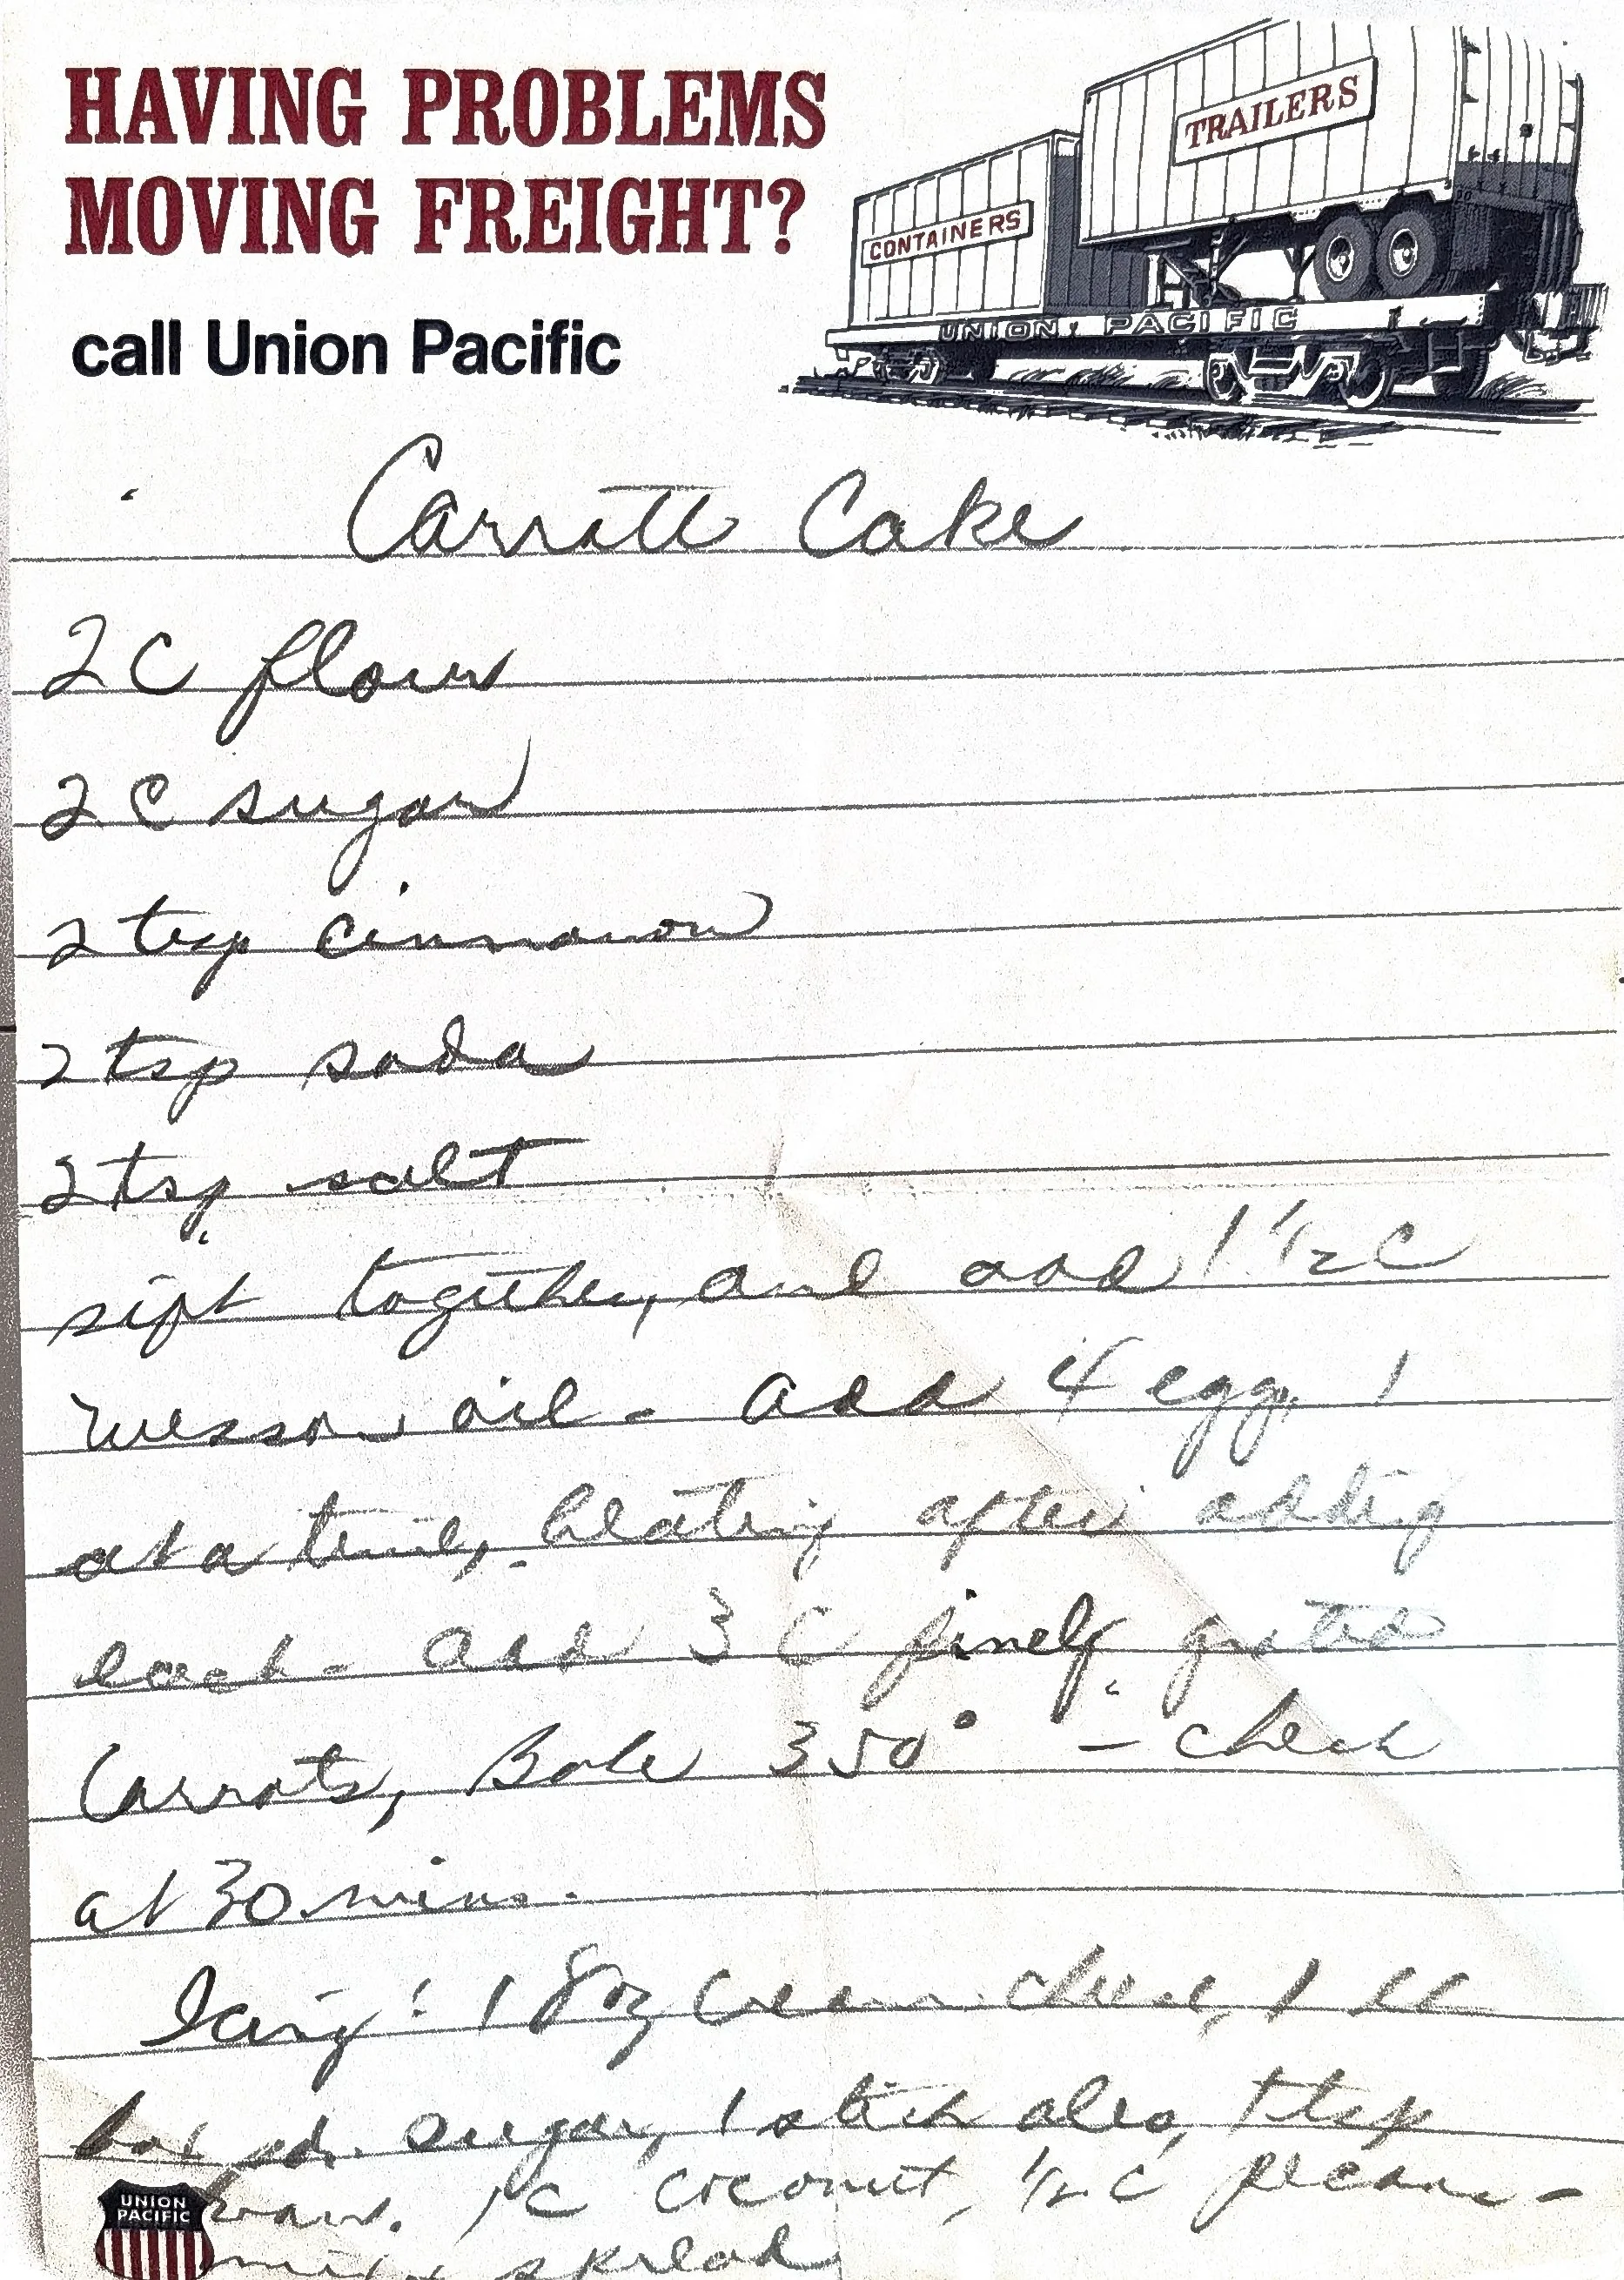 HAVING PROBLEMS
MOVING FREIGHT?
call Union Pacific
TRAILERS
CONTAINERS
UNION PACIFIC
Carrott Cake
2 C flour
2 C sugar
2 tsp cinnamon
2 tsp soda
2 tsp salt
sift together, and add 1 1/2 C
Wesson oil - add 4 egg, 1
at a time, beating after addig
each - add 3 C finely grated
Carrots, Bake 350° - check
at 30 mins.
Icing: 1 8oz cream cheese, 1
box pd. sugar, 1 stick oleo, 1 tsp
van. 1 C coconut, 1/2 C pecans -
mix & spread
UNION
PACIFIC